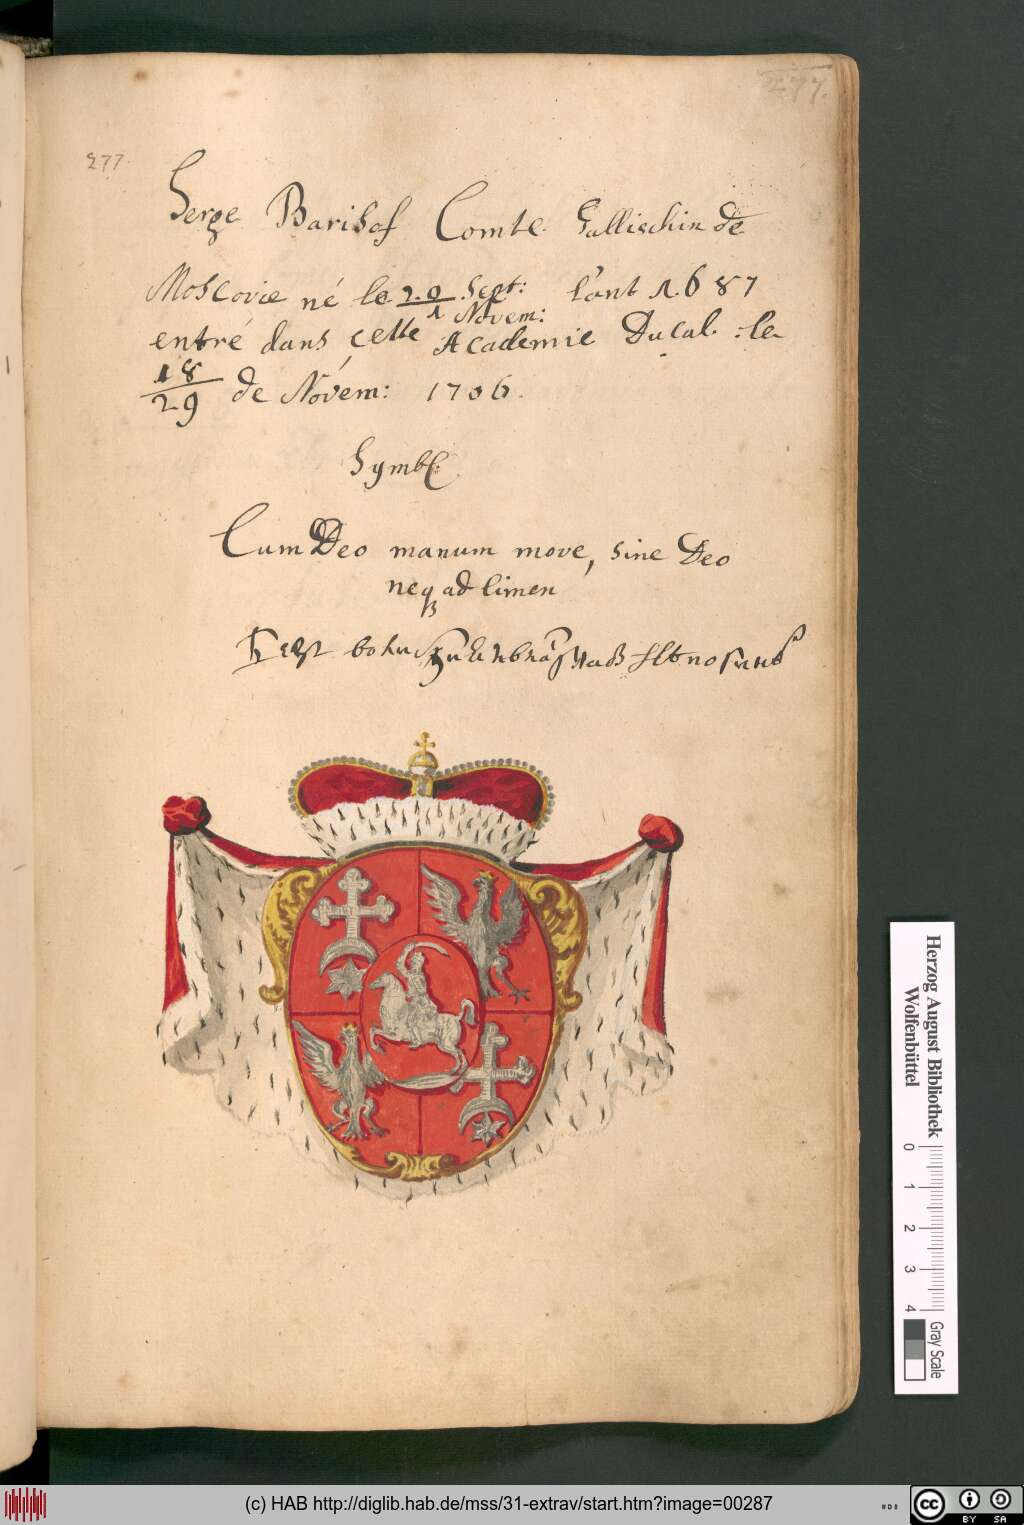 277.
277.
Serge Barisof Comte Gallischin de
Moscovie né le 20 Sept: l'ant 1687
1 Novem:
entré dans cette Academie Ducal. le
18
29 de Novem: 1706.
Symbl:
Cum Deo manum move, sine Deo
neq ad limen
Herzog August Bibliothek
Wolfenbüttel
0 1 2 3 4
Gray Scale
(c) HAB http://diglib.hab.de/mss/31-extrav/start.htm?image=00287
cc BY SA